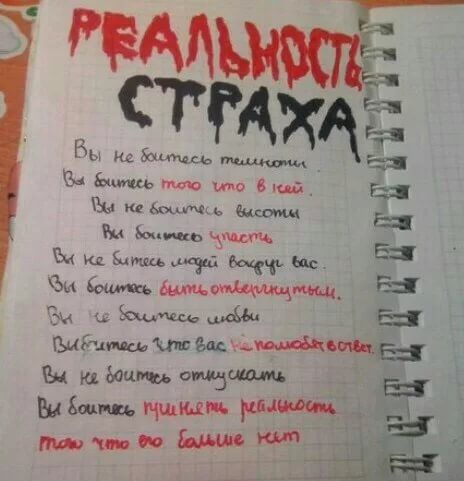 РЕАЛЬНОСТЬ
СТРАХА
Вы не боитесь темноты.
Вы боитесь того что в ней.
Вы не боитесь высоты
Вы боитесь упасть
Вы не битесь людей вокруг вас.
Вы боитесь быть отвергнутым.
Вы не боитесь любви
Вы боитесь что вас не полюбят в ответ.
Вы не боитесь отпускать
Вы боитесь принять реальность
того что его больше нет